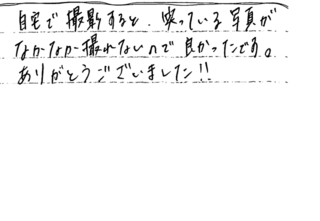 自宅で撮影すると、笑っている写真が
なかなか撮れないので良かったです。
ありがとうございました!!